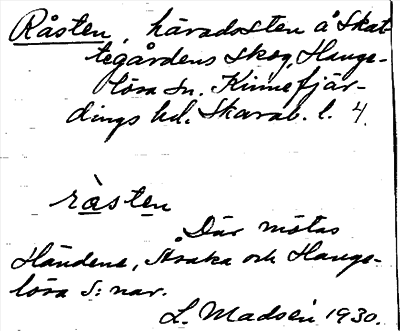 Råsten, häradssten å Skat-
tegårdens skog, Hange-
lösa sn. Kinnefjär-
dings hd. Skarab. l. 4.
råsten
Där mötas
Händene, Åsaka och Hange-
lösa s:nar.
L. Madsén 1930.